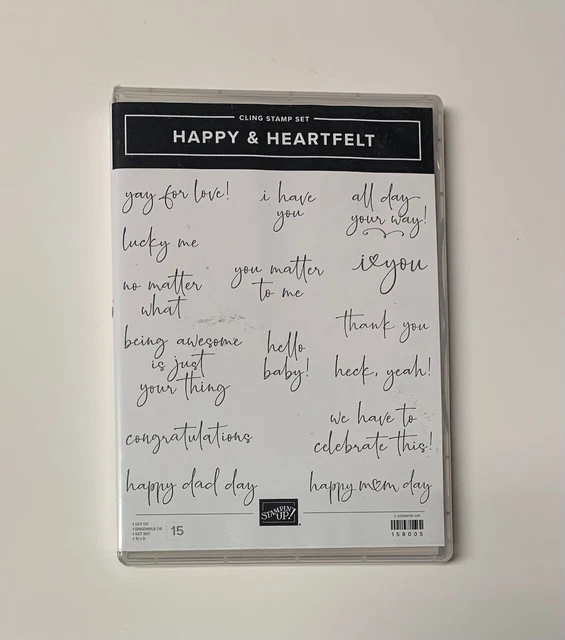 CLING STAMP SET
HAPPY & HEARTFELT
yay for love!
i have
you
all day
your way!
lucky me
i♡you
you matter
to me
no matter
what
thank you
being awesome
is just
your thing
hello
baby!
heck, yeah!
we have to
celebrate this!
congratulations
happy dad day
happy mom day
STAMPIN' UP!
15
158005